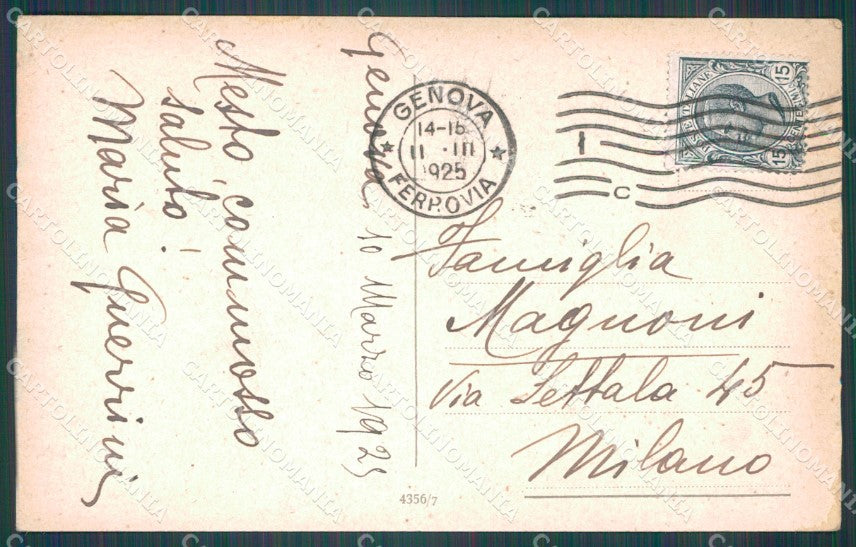 Genova, 10 Marzo 1925
Mesto, commosso
saluto!
Maria Guerrini
GENOVA
14-15
11 · III
1925
FERROVIA
1
C
POSTE ITALIANE
CENTESIMI
15
15
Famiglia
Magnoni
Via Settala 45
Milano
4356/7
CARTOLINOMANIA